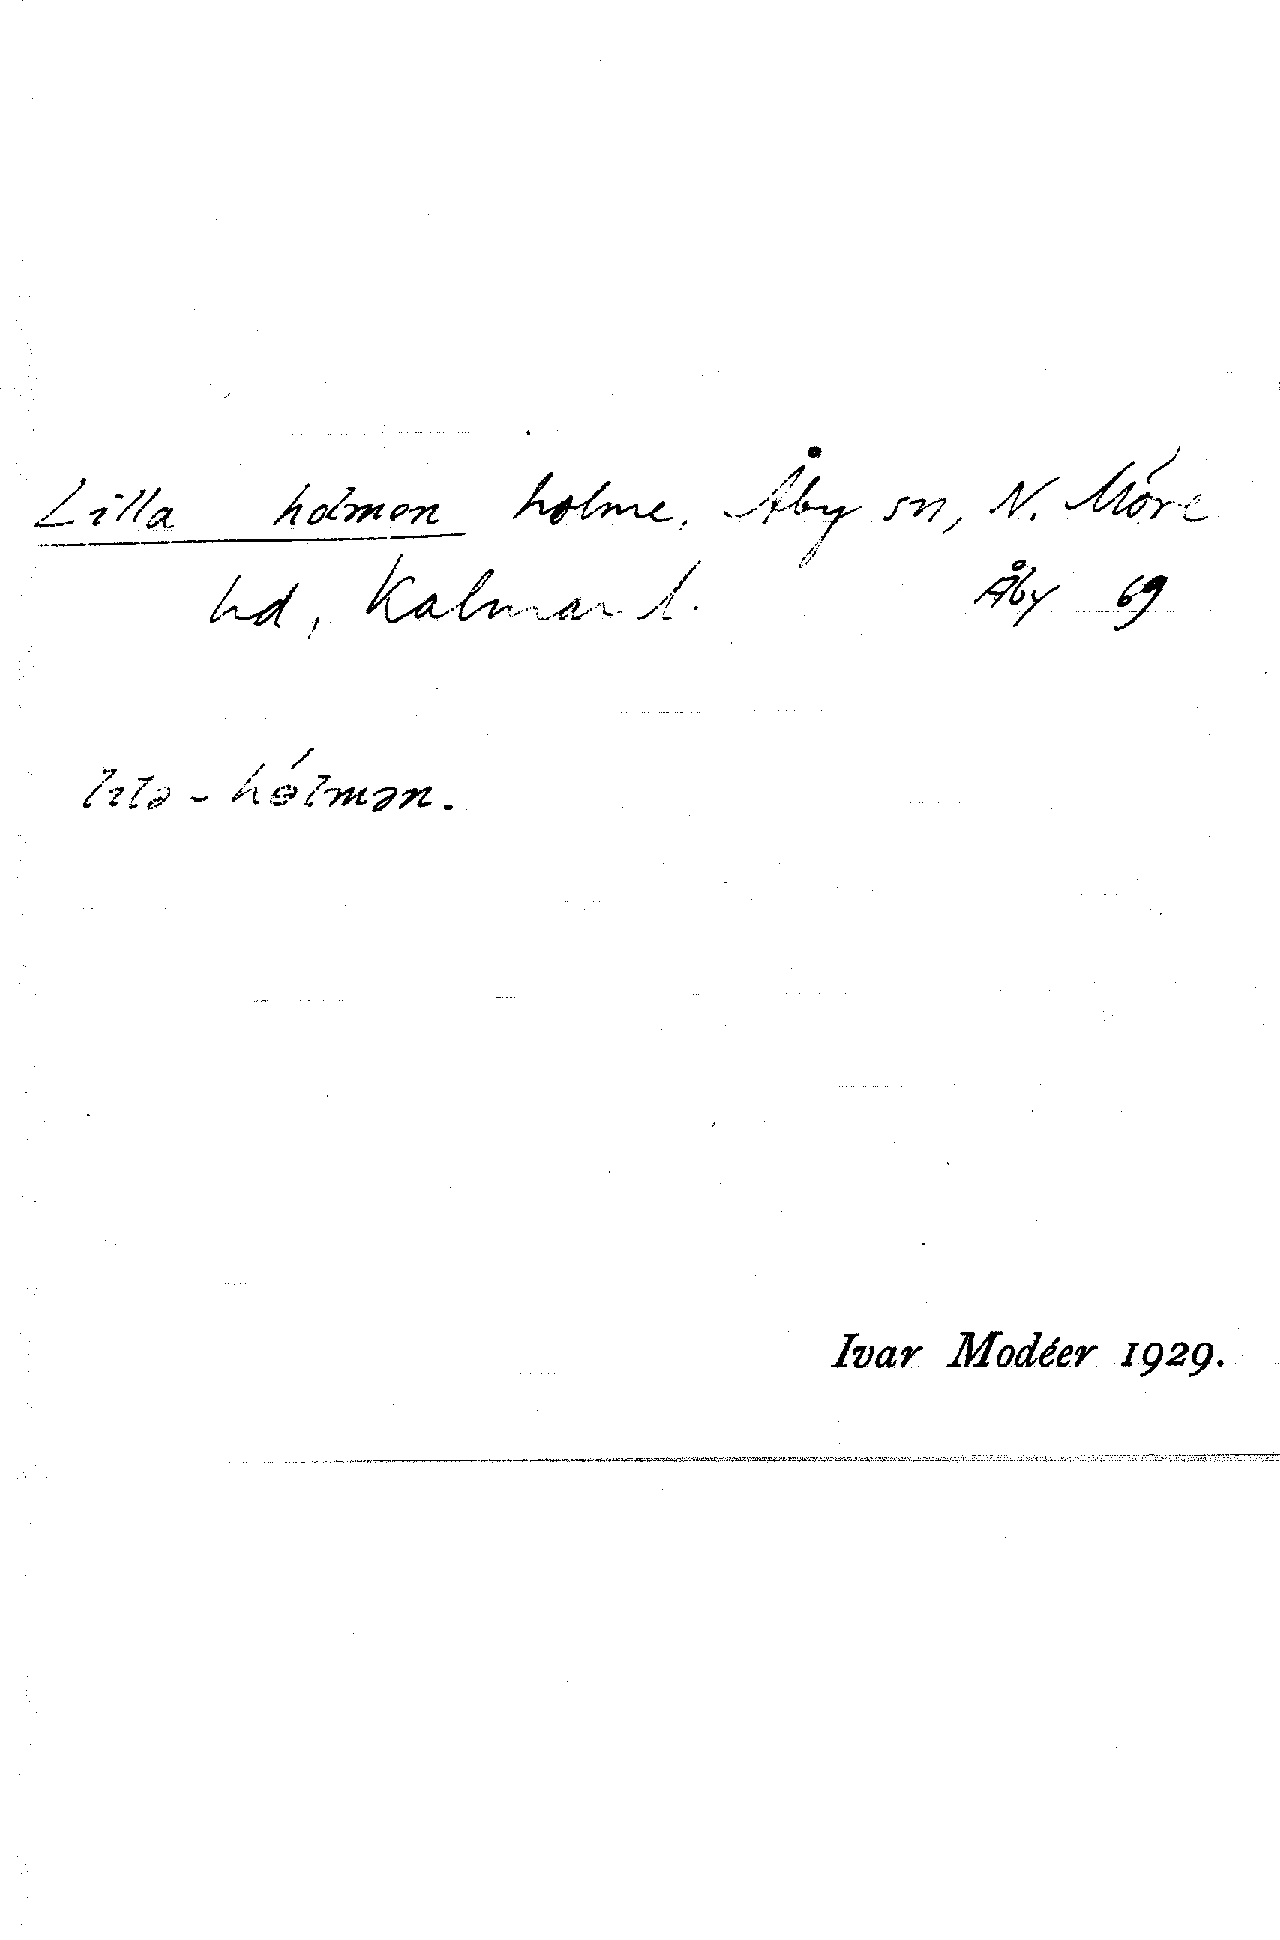 Lilla holmen holme, Åby sn, N. Möre
hd, Kalmar l. Åby 69
lɪlə-hólmən.
Ivar Modéer 1929.